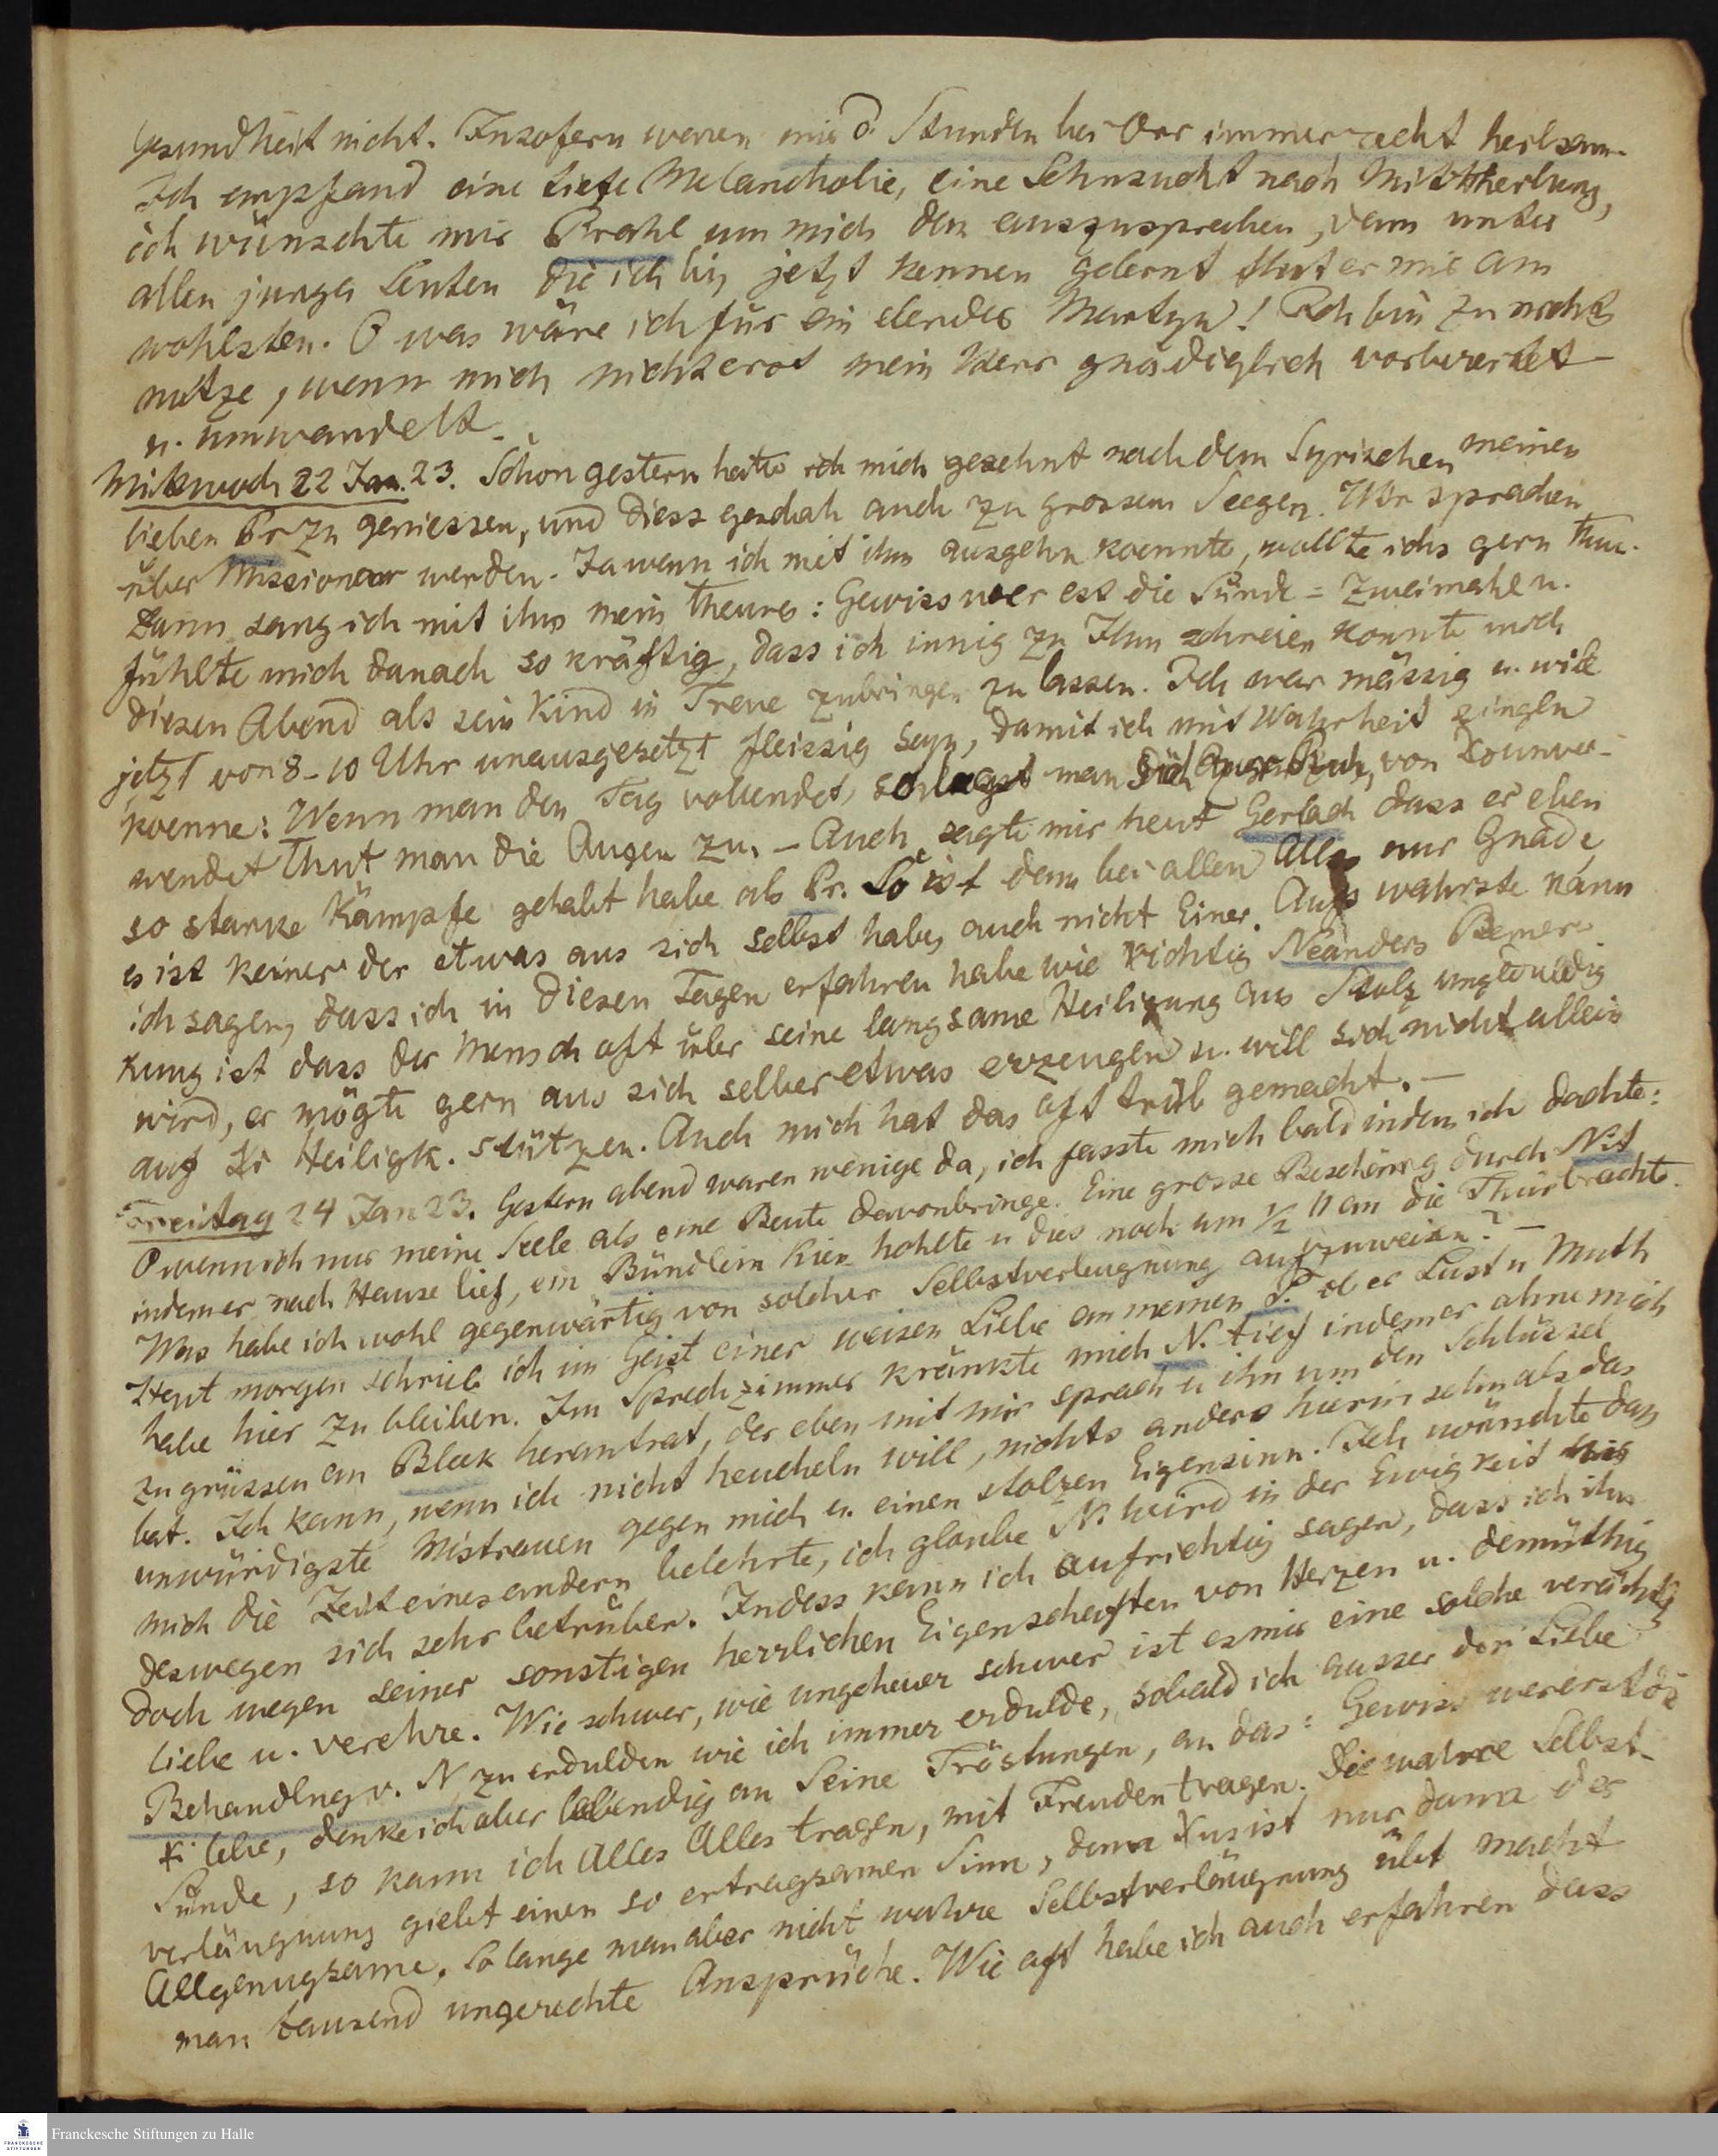 Gesundheit nicht. Insofern waren mir d. Stunden bei Orr immer recht heilsam.
Ich empfand eine tiefe Melancholie, eine Sehnsucht nach Mittheilung,
ich wünschte mir Krahl um mich dem auszusprechen, denn unter
allen jungen Leuten die ich bis jetzt kennen gelernt thut er mir am
wohlsten. O was wäre ich für ein elender Martyr! Ich bin zu nichts
nütze, wenn mich nicht erst mein Herr gnädiglich vorbereitet
u. umwandelt.
Mittwoch 22 Jan. 23. Schon gestern hatte ich mich gesehnt nach dem Syrischen meinen
lieben Pr zu geniessen, und diess geschah auch zu grossem Seegen. Wir sprachen
über Missionar werden. Ja wenn ich mit ihm ausgehn koennte, wollte ichs gern thun.
Dann sang ich mit ihm mein theures: Gewiss wer erst die Sünde = zweimahl u.
fühlte mich danach so kräftig, dass ich innig zu Ihm schreien konnte mich
diesen Abend als sein Kind in Treue zubringen zu lassen. Ich war mässig u. will
jetzt von 8–10 Uhr unausgesetzt fleissig seyn, damit ich mit Wahrheit singen
koenne: Wenn man den Tag vollendet, so legt man sich zur Ruh, von
wendet thut man die Augen zu. – Auch sagte mir heut Gerlach dass er eben
so starke Kämpfe gehabt habe als Pr. So ist denn bei allen Alles nur Gnade,
es ist keiner der etwas aus sich selbst habe, auch nicht Einer. Aufs wahrste kann
ich sagen, dass ich in diesen Tagen erfahren habe wie richtig Neanders Bemer-
kung ist dass der Mensch oft über seine langsame Heiligung aus Stolz ungeduldig
wird, er mögte gern aus sich selber etwas erzeugen u. will sich nicht allein
auf Heiligk. stützen. Auch mich hat das oft trüb gemacht. –
Freitag 24 Jan 23. Gestern abend waren wenige da, ich fasste mich bald indem ich dachte:
O wenn ich nur meine Seele als eine Beute davonbringe. Eine grosse Beschämg durch N.
indem er nach Hause lief, ein Bündlein Kien hohlte u dies noch um ½ 11 an die Thür brachte.
Was habe ich wohl gegenwärtig von solcher Selbstverleugnung aufzuweisen? –
Heut morgen schrieb ich im Geist einer weisen Liebe an meinen P. ob er Lust u Muth
habe hier zu bleiben. Im Sprechzimmer kränkte mich N. tief indem er ohne mich
zu grüssen an Bleek herantrat, der eben mit mir sprach u ihn um den Schlüssel
bat. Ich kann, wenn ich nicht heucheln will, nichts anders hierin sehn als das
unwürdigste Mistrauen gegen mich u. einen stolzen Eigensinn. Ich wünschte dass
mich die Zeit eines andern belehrte, ich glaube N. wird in der Ewigkeit
deswegen sich sehr betrüben. Indess kann ich aufrichtig sagen, dass ich ihn
doch wegen seiner sonstigen herrlichen Eigenschaften von Herzen u. demüthig
liebe u. verehre. Wie schwer, wie ungeheuer schwer ist es mir eine solche verächtl
Behandlng v. N. zu erdulden wie ich immer erdulde, sobald ich ausser der Liebe
lebe, denke ich aber lebendig an Seine Tröstungen, an das: Gewiss wer erst die
Sünde, so kann ich Alles Alles tragen, mit Freuden tragen. Die wahre Selbst-
verläugnung giebt einen so ertragsamen Sinn, denn Xus ist nur dann der
Allgenugsame. So lange man aber nicht wahre Selbstverläugnung übt macht
man tausend ungerechte Ansprüche. Wie oft habe ich auch erfahren dass
Franckesche Stiftungen zu Halle